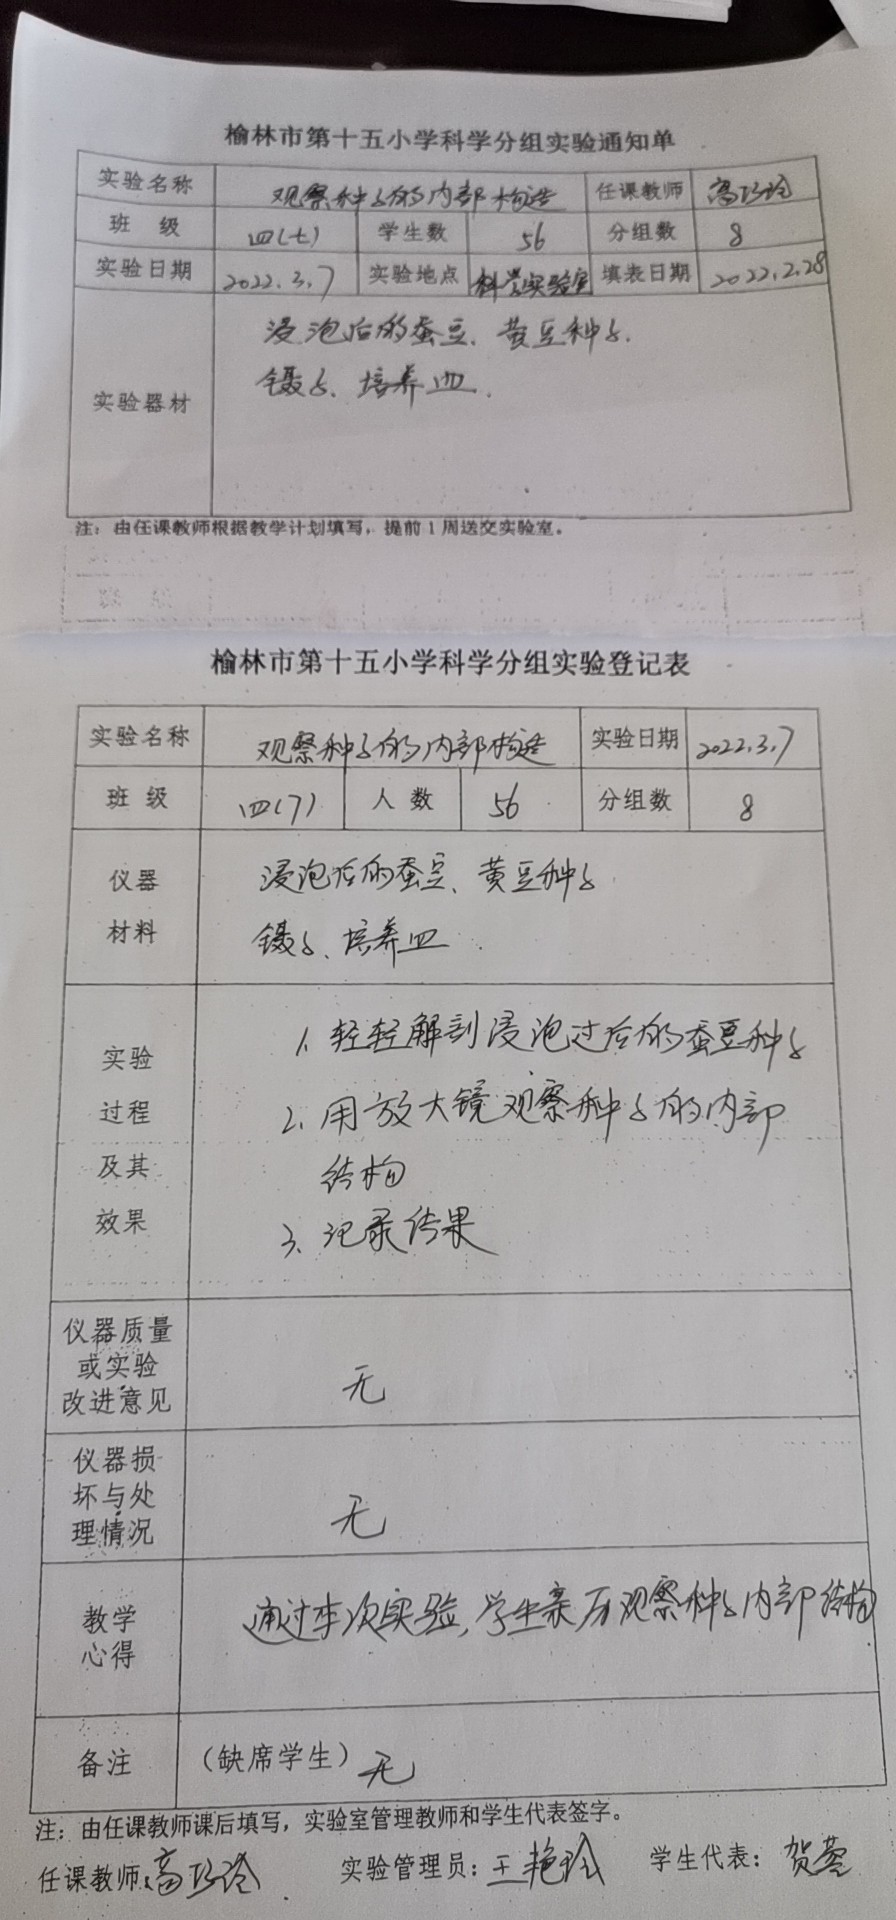 榆林市第十五小学科学分组实验通知单
实验名称 观察种子的内部构造 任课教师 高巧玲
班 级 四(七) 学生数 56 分组数 8
实验日期 2022.3.7 实验地点 科学实验室 填表日期 2022.2.28
浸泡后的蚕豆、黄豆种子.
镊子、培养皿.
实验器材
注：由任课教师根据教学计划填写，提前1周送交实验室。
榆林市第十五小学科学分组实验登记表
实验名称 观察种子的内部构造 实验日期 2022.3.7
班 级 四(7) 人 数 56 分组数 8
仪器 浸泡后的蚕豆、黄豆种子
材料 镊子、培养皿
1. 轻轻解剖浸泡过后的蚕豆种子
实验
过程 2. 用放大镜观察种子的内部
及其 结构
效果 3. 记录结果
仪器质量
或实验
改进意见 无
仪器损
坏与处
理情况 无
教学 通过本次实验,学生亲历观察种子内部结构
心得
备注 （缺席学生）无
注：由任课教师课后填写，实验室管理教师和学生代表签字。
任课教师:高巧玲 实验管理员：王艳玲 学生代表：贺